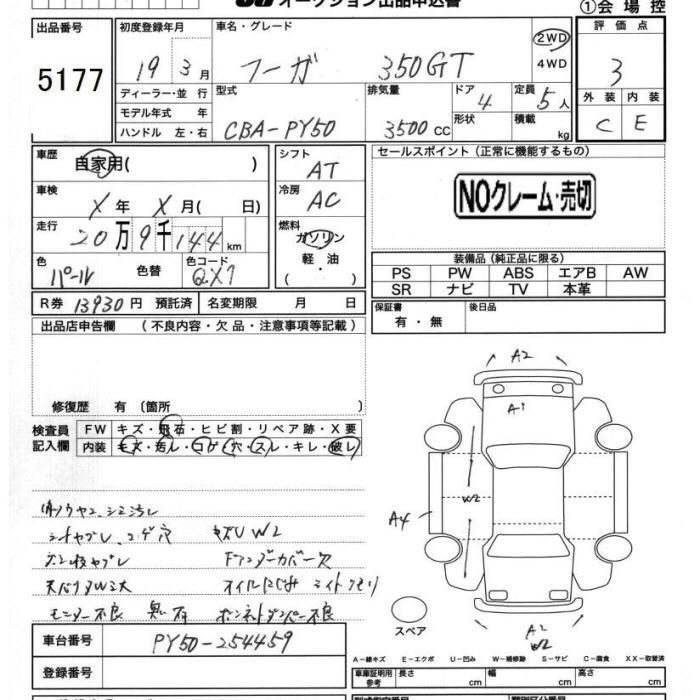 オークション出品申込書
①会場控
出品番号
5177
初度登録年月
19 3月
ディーラー・並行 年
モデル年式 年
ハンドル 左・右
車名・グレード
フーガ 350GT
2WD
4WD
型式
CBA-PY50
排気量
3500cc
ドア 4
形状
定員 5人
積載 kg
評価点
3
外装 内装
C E
車歴
自家用( )
車検
X年 X月( 日)
走行
20万9千144km
色
パール
色替
色コード
QX1
シフト
AT
冷房
AC
燃料
ガソリン
軽・油
( )
セールスポイント(正常に機能するもの)
NOクレーム・売切
装備品(純正品に限る)
PS PW ABS エアB AW
SR ナビ TV 本革
保証書
有・無
後日品
R券 13930円 預託済 名変期限 月 日
出品店申告欄 (不良内容・欠品・注意事項等記載)
修復歴 有 〔箇所 〕
検査員
記入欄
FW キズ・飛石・ヒビ割・リペア跡・X要
内装 キズ・汚レ・コゲ・穴・スレ・キレ・破レ
シートヤブレ、コゲ穴
キズU W2
ドアンダーカバー欠
オイルにじみ
モニター不良
ボンネットダンパー不良
A2
A1
W2
A4
A2
W2
スペア
車台番号 PY50-254459
登録番号
A−線キズ E−エクボ U−凹み W−補修跡 S−サビ C−腐食 XX−取替済
車庫証明用
参考
長さ cm 幅 cm 高さ cm